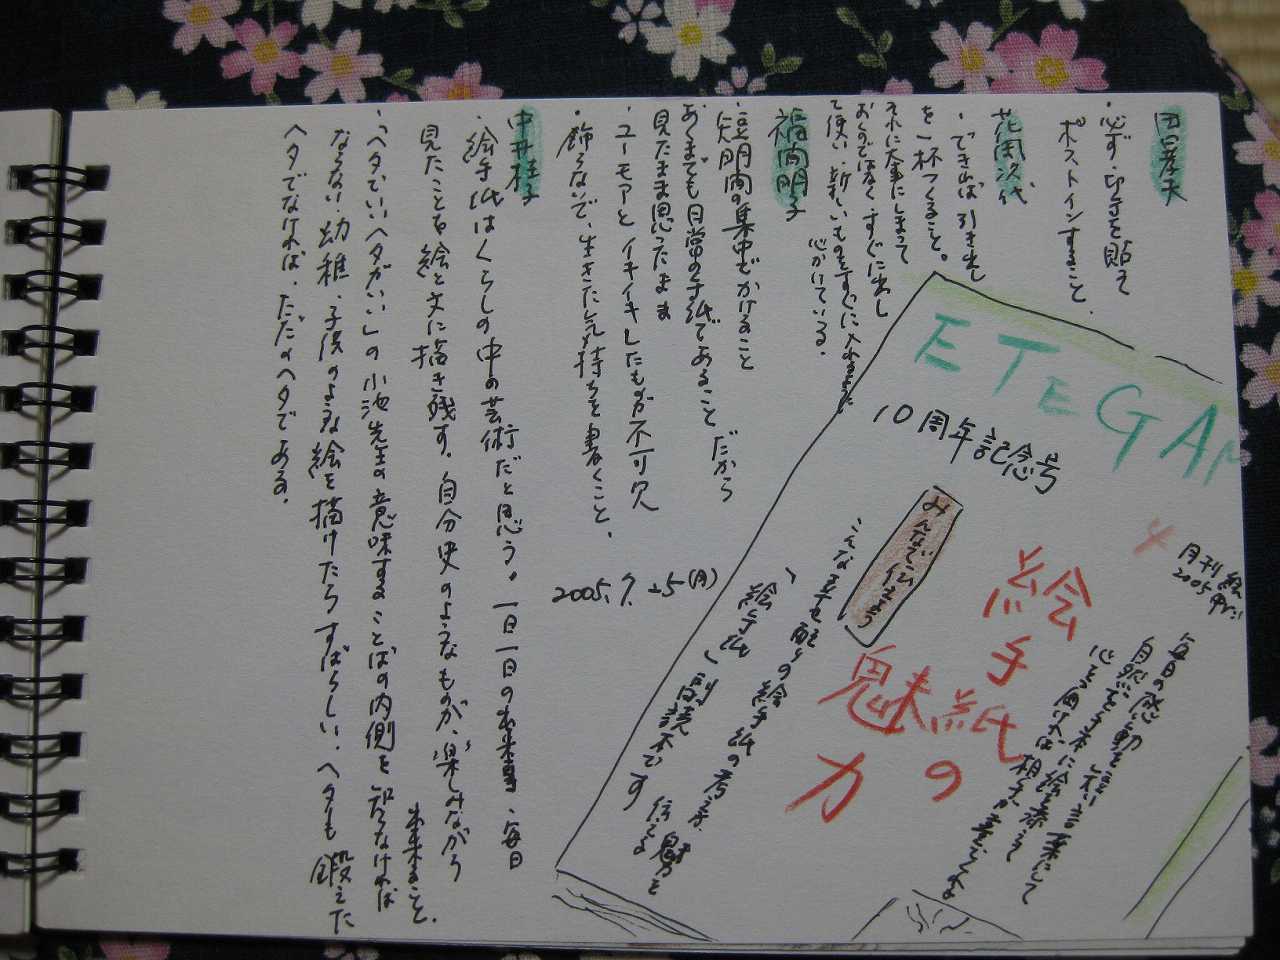 田島孝夫
・必ず、切手を貼って
ポストインすること。
花岡次代
・できれば引き出し
を一杯つくること。
それに大事にしまって
おくのではなく、すぐに出し
て使い、新しいものをすぐに入れるように
心がけている。
福間明子
・短時間の集中でかけること
あくまでも日常の手紙であること だから
見たまま思ったまま
・ユーモアとイキイキしたものが不可欠
・飾らないで、生きた気持ちを書くこと。
中井桂子
・絵手紙はくらしの中の芸術だと思う。一日一日の出来事、毎日
見たことを絵と文に描き残す。自分史のようなものが、楽しみながら
出来ること。
・「ヘタでいいヘタがいい」の小池先生の意味することばの内側を知らなければ
ならない。幼稚、子供のような絵を描けたらすばらしい。ヘタも鍛えた
ヘタでなければ、ただのヘタである。
2005.7.25(月)
ETEGAM
10周年記念号
月刊 絵
2005
絵手紙の
魅力
みんなで伝えよう
毎日の感動を短い言葉にして
自然を手本に絵を添えて
心を届ければ相手が喜んでくれる
こんな幸せ配りの絵手紙の考え方、魅力を
伝える
「絵手紙」副読本です